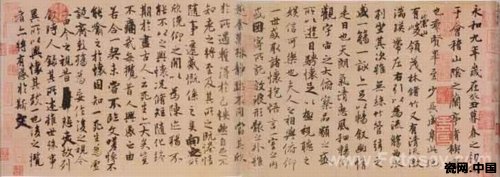 永和九年歲在癸丑暮春之初會
于會稽山陰之蘭亭脩稧事
也羣賢畢至少長咸集此地
有崇山峻領茂林脩竹又有清流激
湍暎帶左右引以為流觴曲水
列坐其次雖無絲竹管弦之
盛一觴一詠亦足以暢敘幽情
是日也天朗氣清惠風和暢仰
觀宇宙之大俯察品類之盛
所以遊目騁懷足以極視聽之
娛信可樂也夫人之相與俯仰
一世或取諸懷抱悟言一室之內
或因寄所託放浪形骸之外雖
趣舍萬殊靜躁不同當其欣
於所遇蹔得於己怏然自足不
知老之將至及其所之既惓情
隨事遷感慨係之矣向之所
欣俛仰之閒以為陳迹猶不
能不以之興懷況脩短隨化終
期於盡古人云死生亦大矣豈
不痛哉每攬昔人興感之由
若合一契未嘗不臨文嗟悼不
能喻之於懷固知一死生為虛
誕齊彭殤為妄作後之視今
亦由今之視昔悲夫故列
敘時人錄其所述雖世殊事
異所以興懷其致一也後之攬
者亦將有感於斯文
瓷网.中国